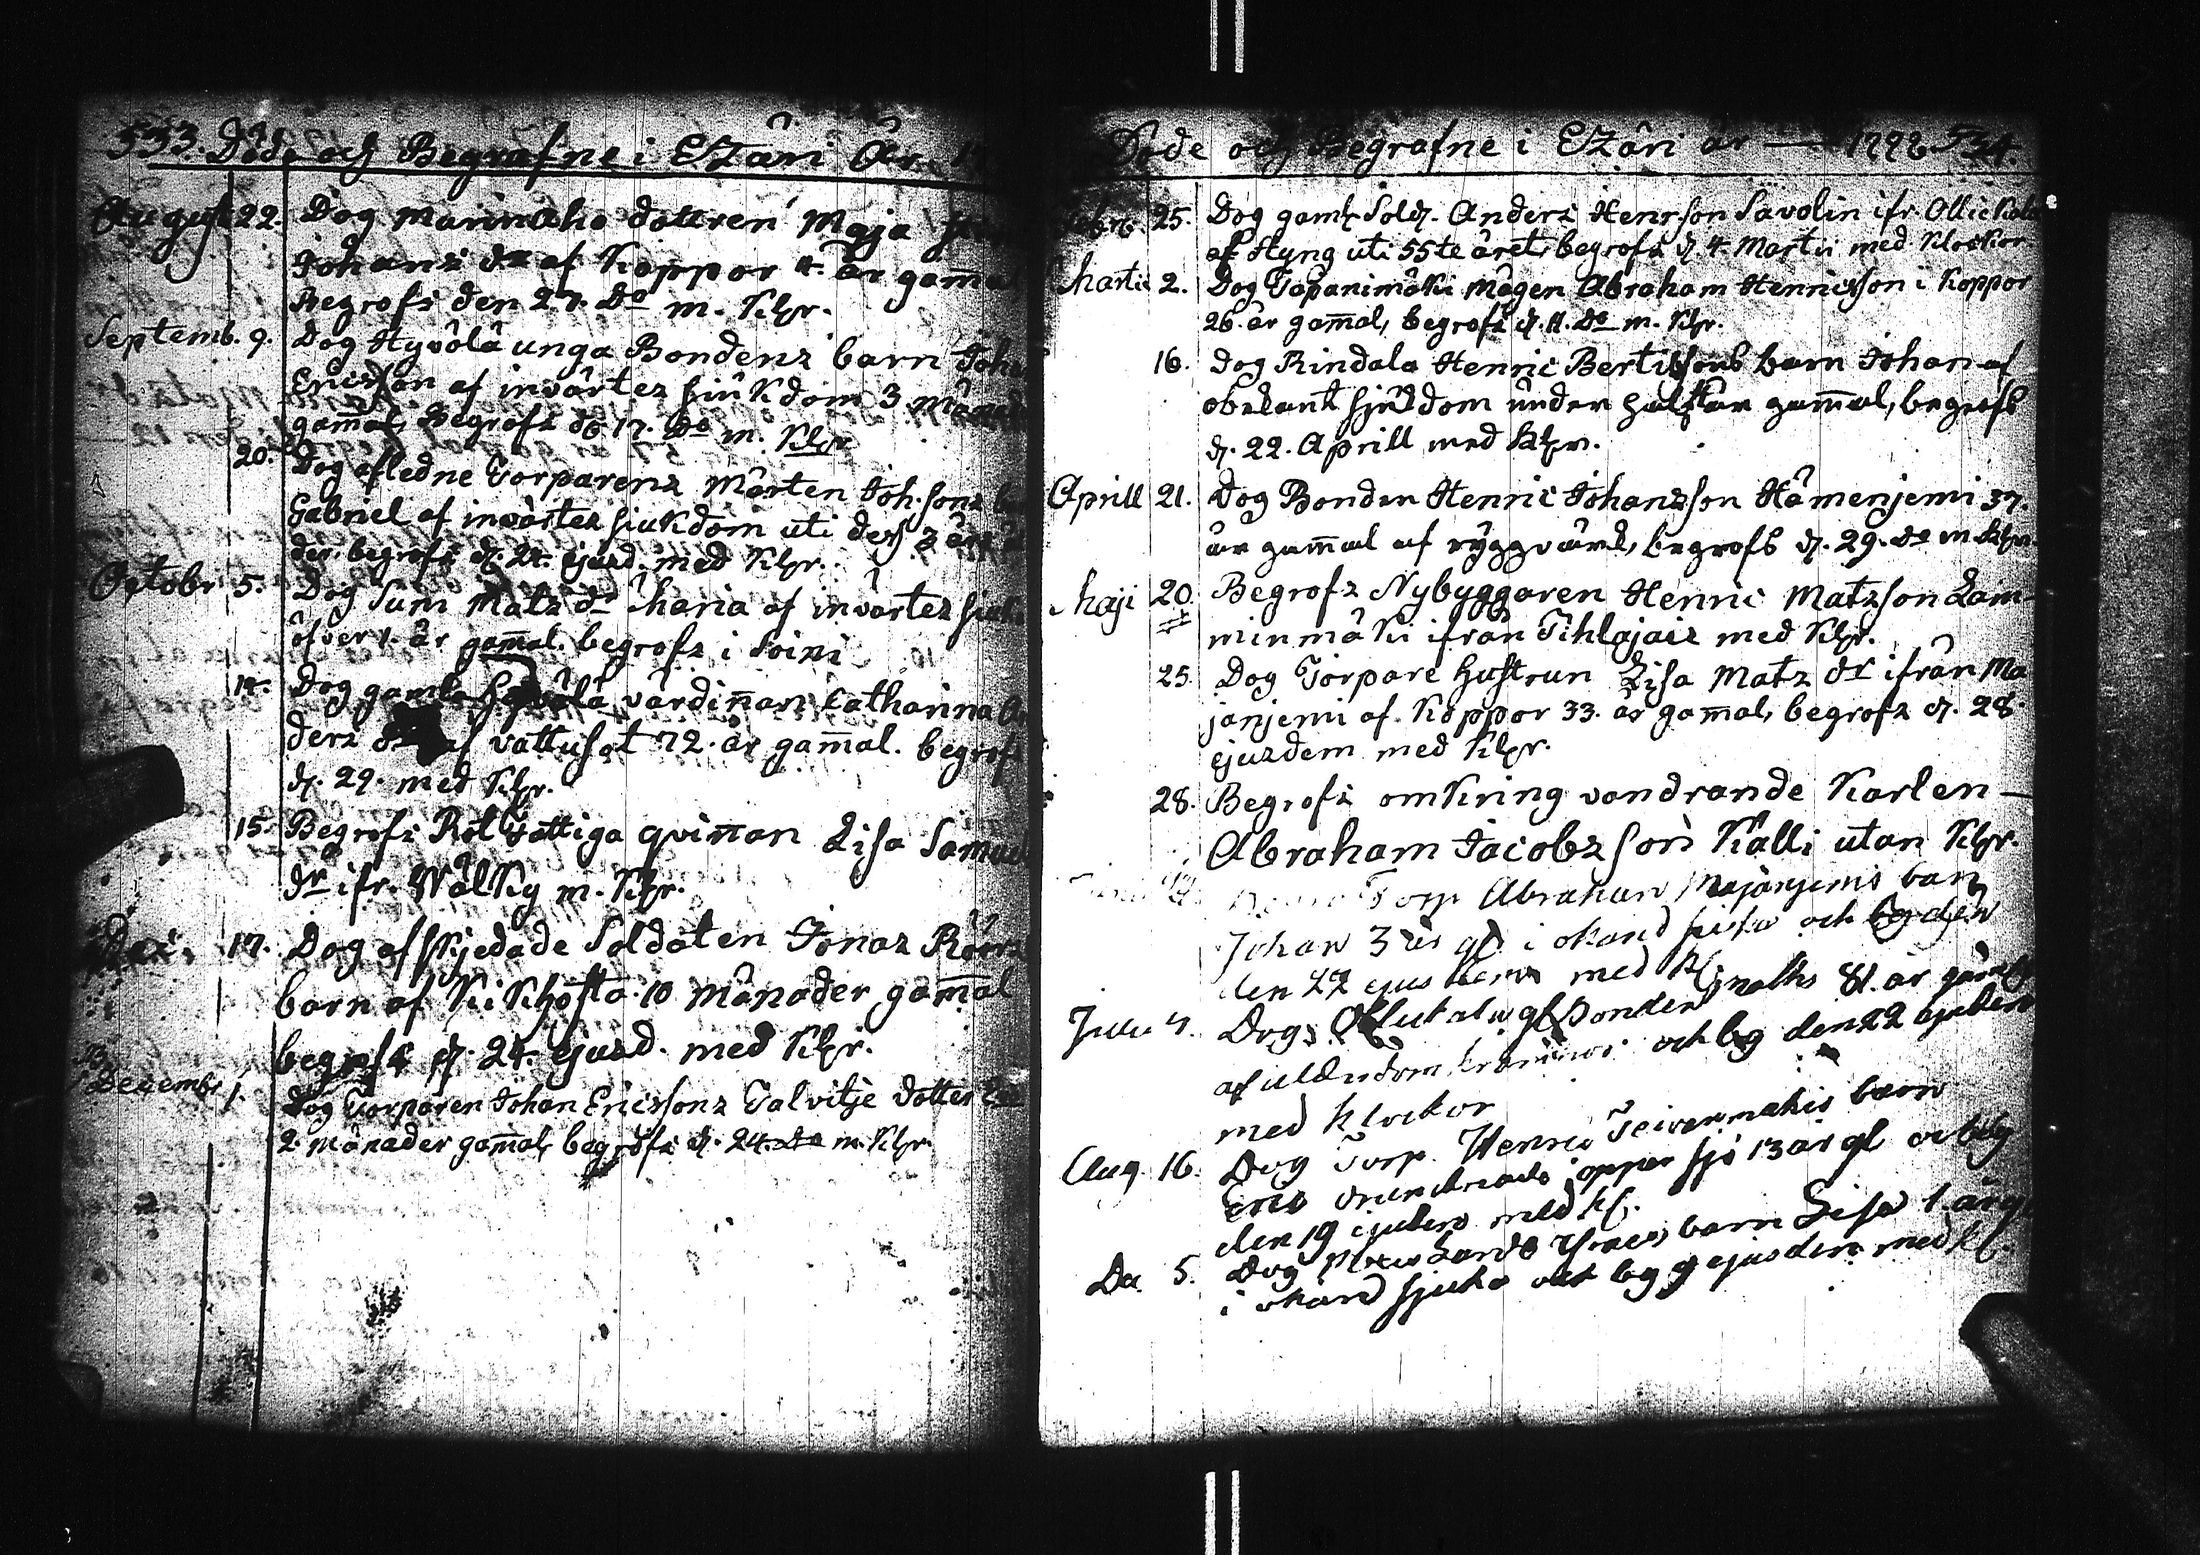 533. Döde och Begrafne i Etzäri År
August 22. Dog Marinaho dottren Maja
Johans dr af Koppor 4. år gam̄al
Begrofs den 27. do m. Klr.
Septemb. 9. Dog Hyvölä unga Bondens barn Joh
Ericsson af invärtes siukdom 3 månad
gam̄al, Begrofs d. 17. do m. Klr
20. Dog afledne Torparens Mårten Joh.sons
Gabriel af invärtes siukdom uti dess 3
der. begrofs d. 24. ejusd. med Klr.
Octobr. 5. Dog Sum Mats dr Maria af invärtes
öfver 1. år gam̄al. begrofs i Soini
14. Dog gamla Hyvölä värdin̄an Catharina
ders dr af vattusot 72. år gam̄al. begrof
d. 29. med Klr.
15. Begrofs Rot fattiga qvin̄an Lisa Samuel
dr ifr. Wälky m. Klr.
Dec. 17. Dog afskjedade Soldaten Jonas
barn af Kikhosta 10 månader gam̄al
begrofs d. 24. ejusd. med Klr.
Decembr 1. Dog Torparen Johan Ericssons Talvitje dotter
2. månader gam̄al, begrofs d. 24. do m. Klr.
Döde och Begrafne i Etzäri år — 1778. 534.
Febr. 25. Dog gaml. Sold. Anders Henrson Savolin ifr. Ollickala
af Styng uti 55te året, begrofs d. 4. Martii med Klockor
Martii 2. Dog Tapanimäki Mågen Abraham Henricsson i Koppor
26. år gam̄al, begrofs d. 11. do m. Klr.
16. Dog Rindala Henric Bertilsons barn Johan af
obekant sjukdom under half år gam̄al, begrofs
d. 22. Aprill med Klr.
Aprill 21. Dog Bonden Henric Johansson Hämenjemi 37.
år gam̄al af ryggvärk, begrofs d. 29. do m Klr.
Maji 20. Begrofs Nybyggaren Henric Matsson Lam-
minmäki ifrån Tihlajais med Klr.
25. Dog Torpare hustrun Lisa Mats dr ifrån Ma
janjemi af Koppor 33. år gam̄al, begrofs d. 28
ejusdem med Klr.
28. Begrofs omkring vandrande Karlen —
Abraham Jacobsson Källi utan Klr.
Torp Abraham Majanjemis barn
Johan 3 år gl i okand sjuka och
den 22 ejusdem med Kl.
Julii 4. Dog gl Bonden Maths 81. år gamal
af ålderdom och bg den 22 ejusdem
med Klockor
Aug 16. Dog Torp. Henric barn
Eric drunknade i sjö 13 år gl och bg
den 19 ejusdem med Kl.
De 5. Dog barn Lisa 1. år g
i okand sjuka och bg 9 ejusdem med Kl.